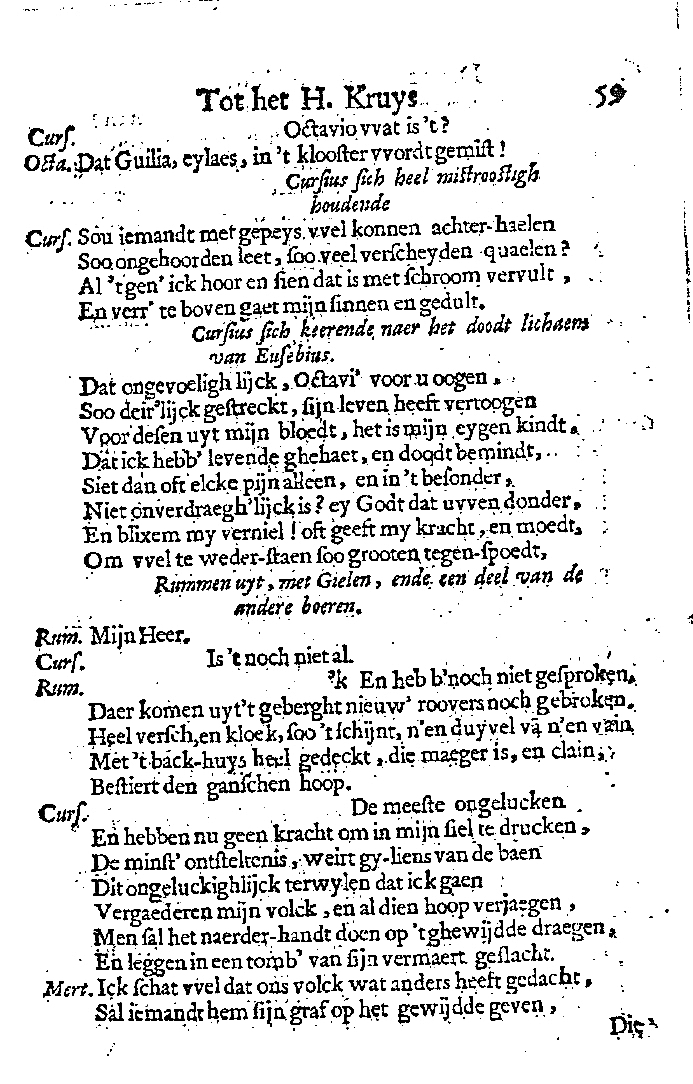 Tot het H. Kruys 59
Curſ. Octavio vvat is 't?
Octa. Dat Guilia, eylaes, in 't klooſter vvordt gemiſt!
Curſius ſich heel miſtrooſtigh
houdende
Curſ. Sou iemandt met gepeys vvel konnen achter-haelen
Soo ongehoorden leet, ſoo veel verſcheyden quaelen?
Al 't gen' ick hoor en ſien dat is met ſchroom vervult,
En verr' te boven gaet mijn ſinnen en gedult.
Curſius ſich keerende naer het doodt lichaem
van Euſebius.
Dat ongevoeligh lijck, Octavi' voor u oogen,
Soo deir'lijck geſtreckt, ſijn leven heeft vertoogen
Voor deſen uyt mijn bloedt, het is mijn eygen kindt,
Dat ick hebb' levende ghehaet, en doodt bemindt,
Siet dan oft elcke pijn alleen, en in 't beſonder,
Niet onverdraegh'lijck is? ey Godt dat uvven donder,
En blixem my verniel! oft geeft my kracht, en moedt,
Om vvel te weder-ſtaen ſoo grooten tegen-ſpoedt,
Rummen uyt, met Gielen, ende een deel van de
andere boeren.
Rum. Mijn Heer.
Curſ. Is 't noch niet al.
Rum. 'k En heb b'noch niet geſproken,
Daer komen uyt't geberght nieuw' roovers noch gebroken.
Heel verſch, en kloek, ſoo 't ſchijnt, n'en duyvel vā n'en vain
Met 't back-huys heel gedeckt, die maeger is, en clain,
Beſtiert den ganſchen hoop.
Curſ. De meeſte ongelucken
En hebben nu geen kracht om in mijn ſiel te drucken,
De minſt' ontſteltenis, weirt gy-liens van de baen
Dit ongeluckighlijck terwylen dat ick gaen
Vergaederen mijn volck, en al dien hoop verjaegen,
Men ſal het naerder-handt doen op 't ghewijdde draegen,
En leggen in een tomb' van ſijn vermaert geſlacht.
Mert. Ick ſchat vvel dat ons volck wat anders heeft gedacht,
Sal iemandt hem ſijn graf op het gewijdde geven,
Die